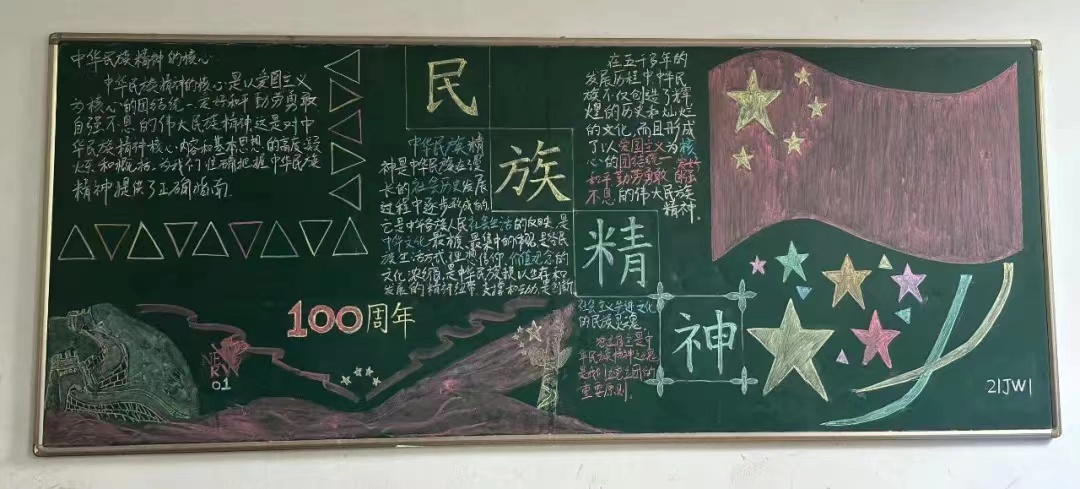 中华民族精神的核心
中华民族精神的核心是以爱国主义
为核心的团结统一爱好和平勤劳勇敢
自强不息的伟大民族精神,这是对中
华民族精神核心内容和基本思想的高度凝
炼和概括,为我们正确把握中华民族
精神提供了正确指南
民
族
精
神
中华民族精
神是中华民族在漫
长的社会历史发展
过程中逐步形成的,
它是中华各族人民社会生活的反映,是
中华文化最本质、最集中的体现,是各民
族生活方式、理想信仰、价值观念的
文化浓缩,是中华民族赖以生存和
发展的精神纽带、支撑和动力,是创新
社会主义先进文化
的民族之魂
独立自主是中
华民族精神之魂
是我们立党立国的
重要原则
在五千多年的
发展历程中中华民
族不仅创造了辉
煌的历史和灿烂
的文化,而且形成
了以爱国主义为核
心的团结统一爱好
和平勤劳勇敢自强
不息的伟大民族
精神。
100周年
01
21JW1